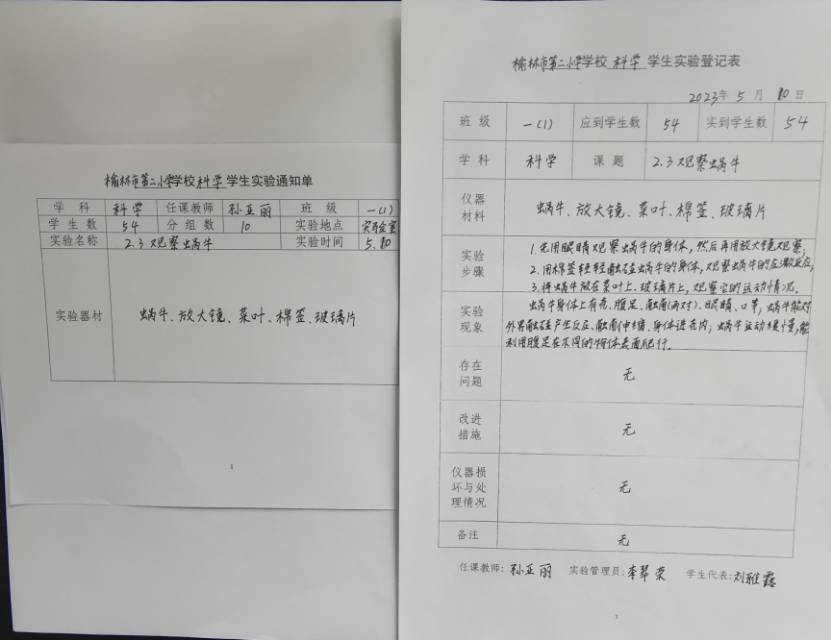 榆林市第二小学学校 科学 学生实验通知单
学 科 科学 任课教师 孙亚丽 班 级 一(1)
学 生 数 54 分 组 数 10 实验地点 实验室
实验名称 2.3 观察蜗牛 实验时间 5.10
实验器材 蜗牛、放大镜、菜叶、棉签、玻璃片
1
榆林市第二小学学校 科学 学生实验登记表
2023年 5 月 10 日
班 级 一(1) 应到学生数 54 实到学生数 54
学 科 科学 课 题 2.3 观察蜗牛
仪器
材料
蜗牛、放大镜、菜叶、棉签、玻璃片
实验
步骤
1. 先用眼睛观察蜗牛的身体,然后再用放大镜观察;
2. 用棉签轻轻触碰蜗牛的身体,观察蜗牛的应激反应;
3. 将蜗牛放在菜叶上、玻璃片上,观察它的运动情况。
实验
现象
蜗牛身体上有壳、腹足、触角(两对)、眼睛、口等;蜗牛能对
外界触碰产生反应、触角伸缩、身体进壳内;蜗牛运动缓慢,能
利用腹足在不同的物体表面爬行。
存在
问题
无
改进
措施
无
仪器损
坏与处
理情况
无
备注 无
任课教师:孙亚丽 实验管理员:李琴荣 学生代表:刘雅露